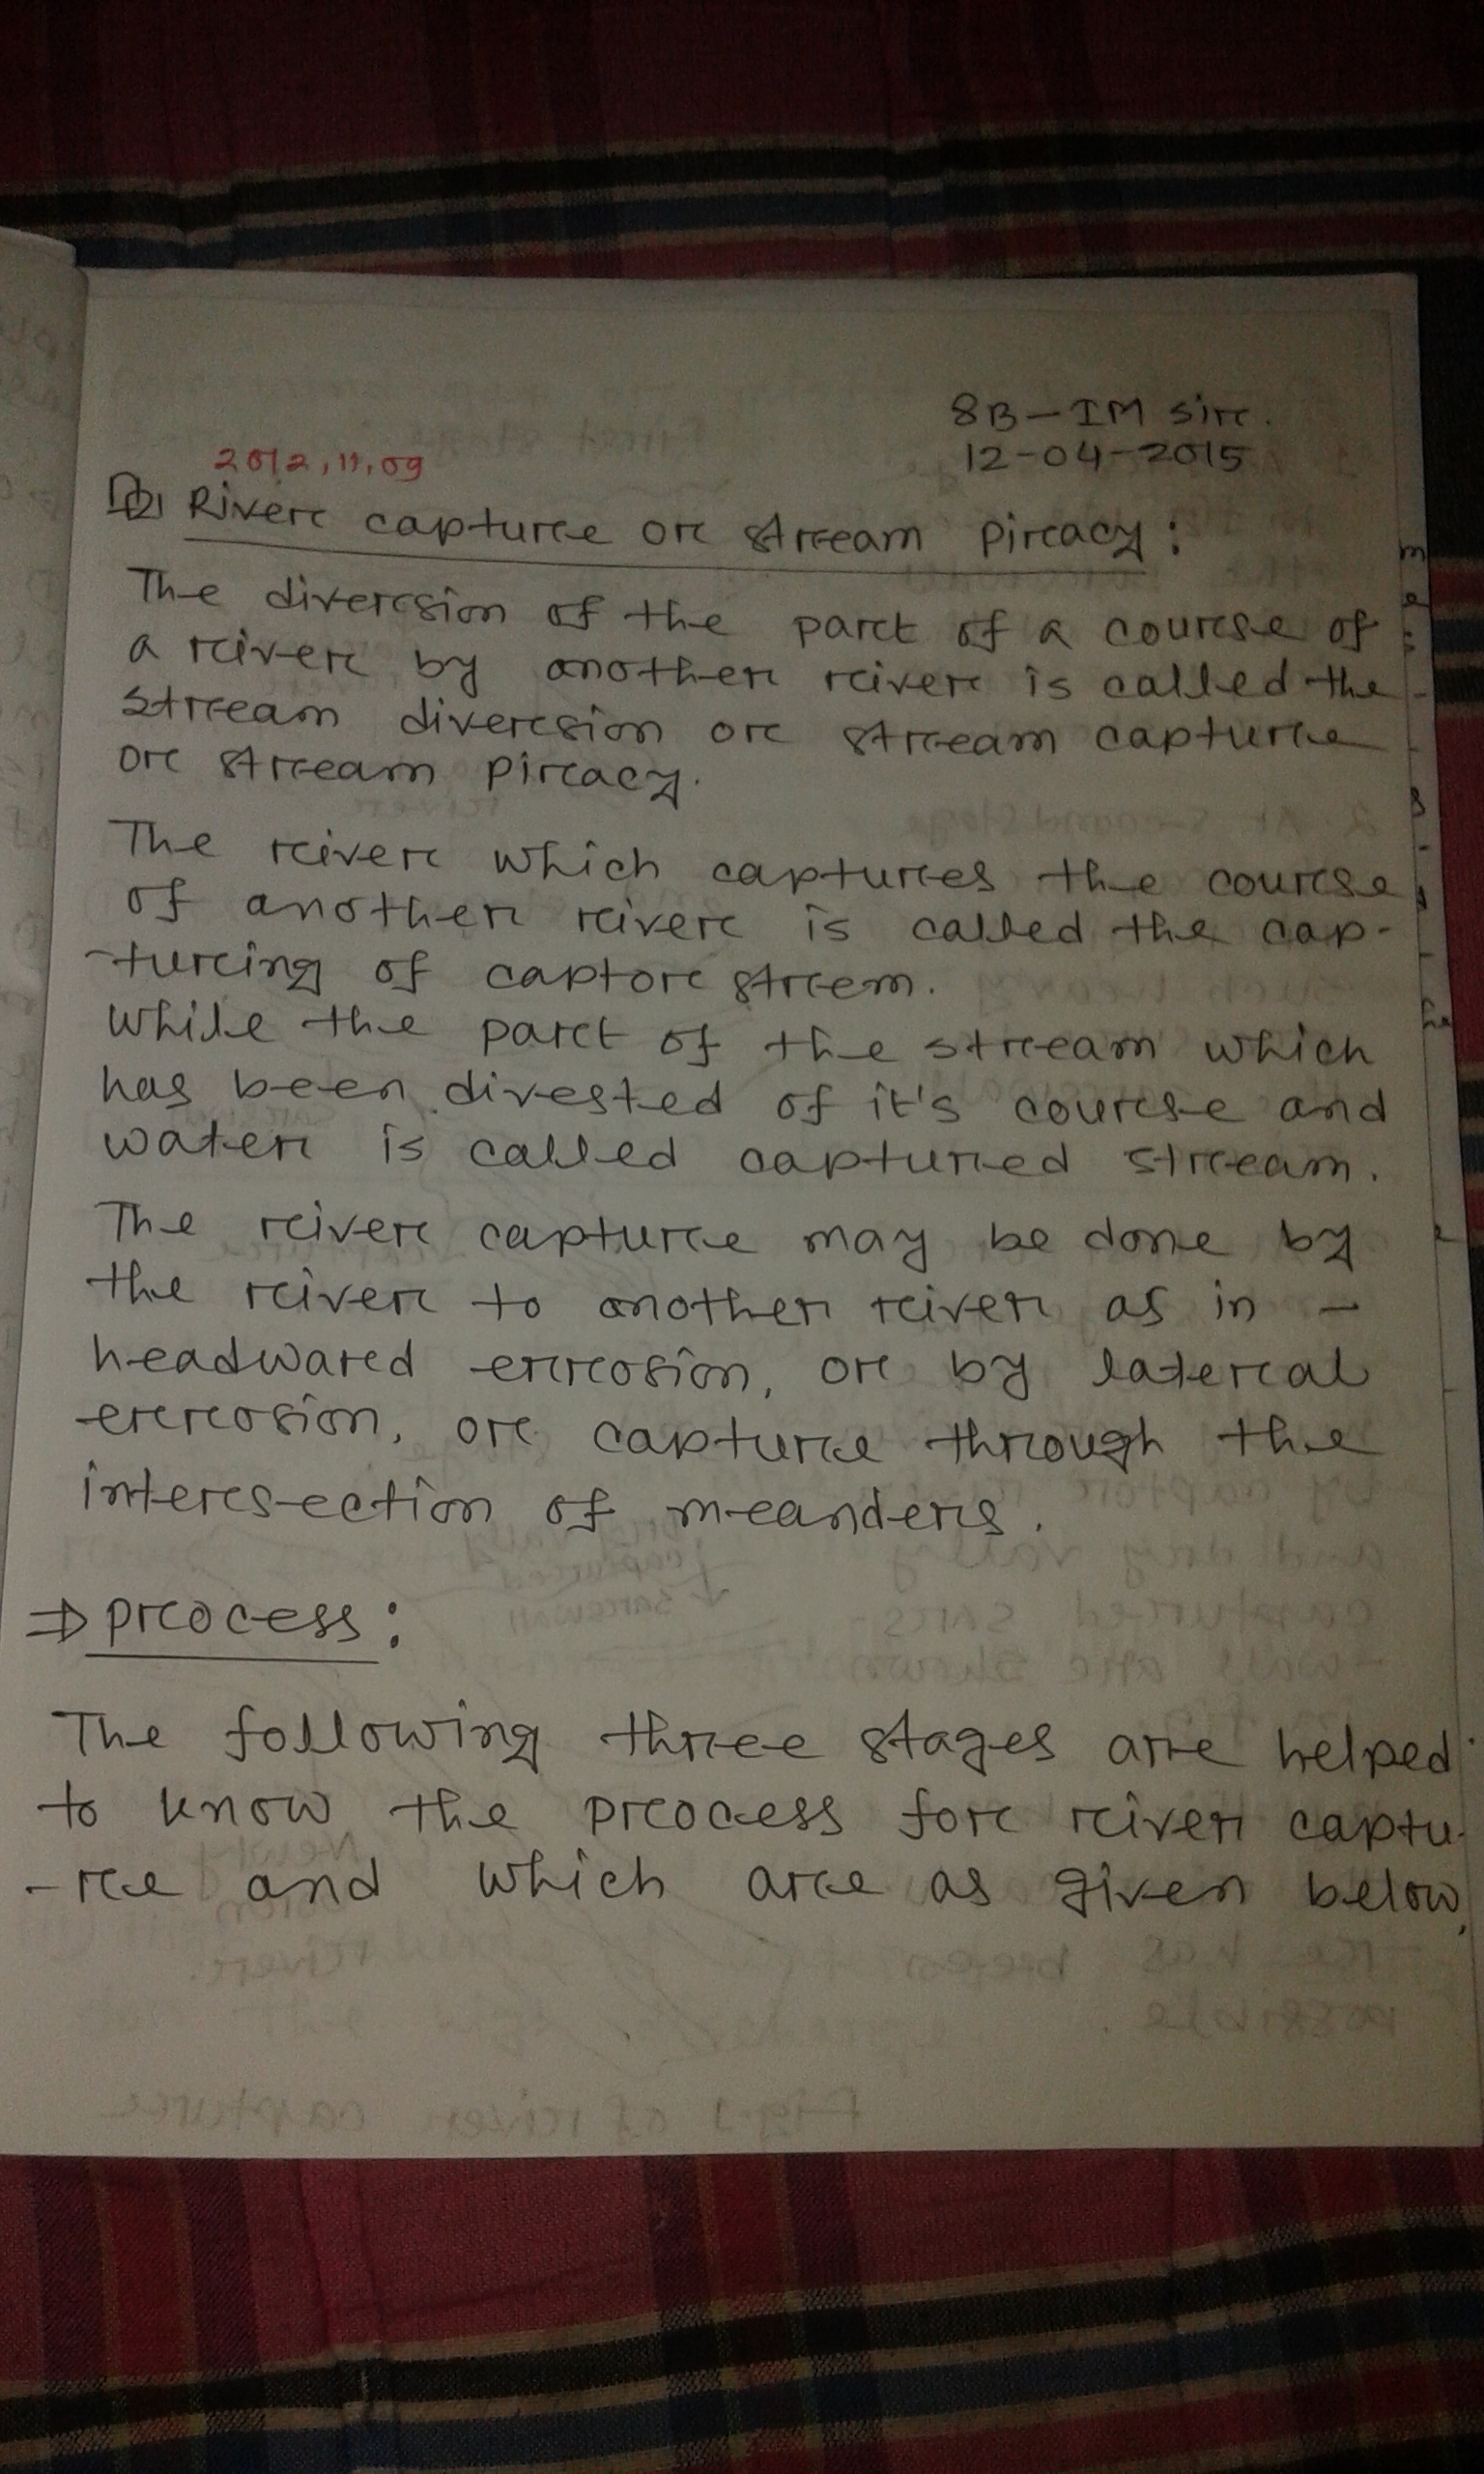 8B-IM Sir.
12-04-2015
2012, 11, 09
River capture or stream Piracy:
The diversion of the part of a course of
a river by another river is called the
stream diversion or stream capture
or stream piracy.
The river which captures the course
of another river is called the cap-
-turing of captor streem.
While the part of the stream which
has been divested of it's course and
water is called captured stream.
The river capture may be done by
the river to another river as in -
headward errosion, or by lateral
errosion, or capture through the
intersection of meanders.
⇒ process:
The following three stages are helped
to know the process for river captu-
-re and which are as given below,